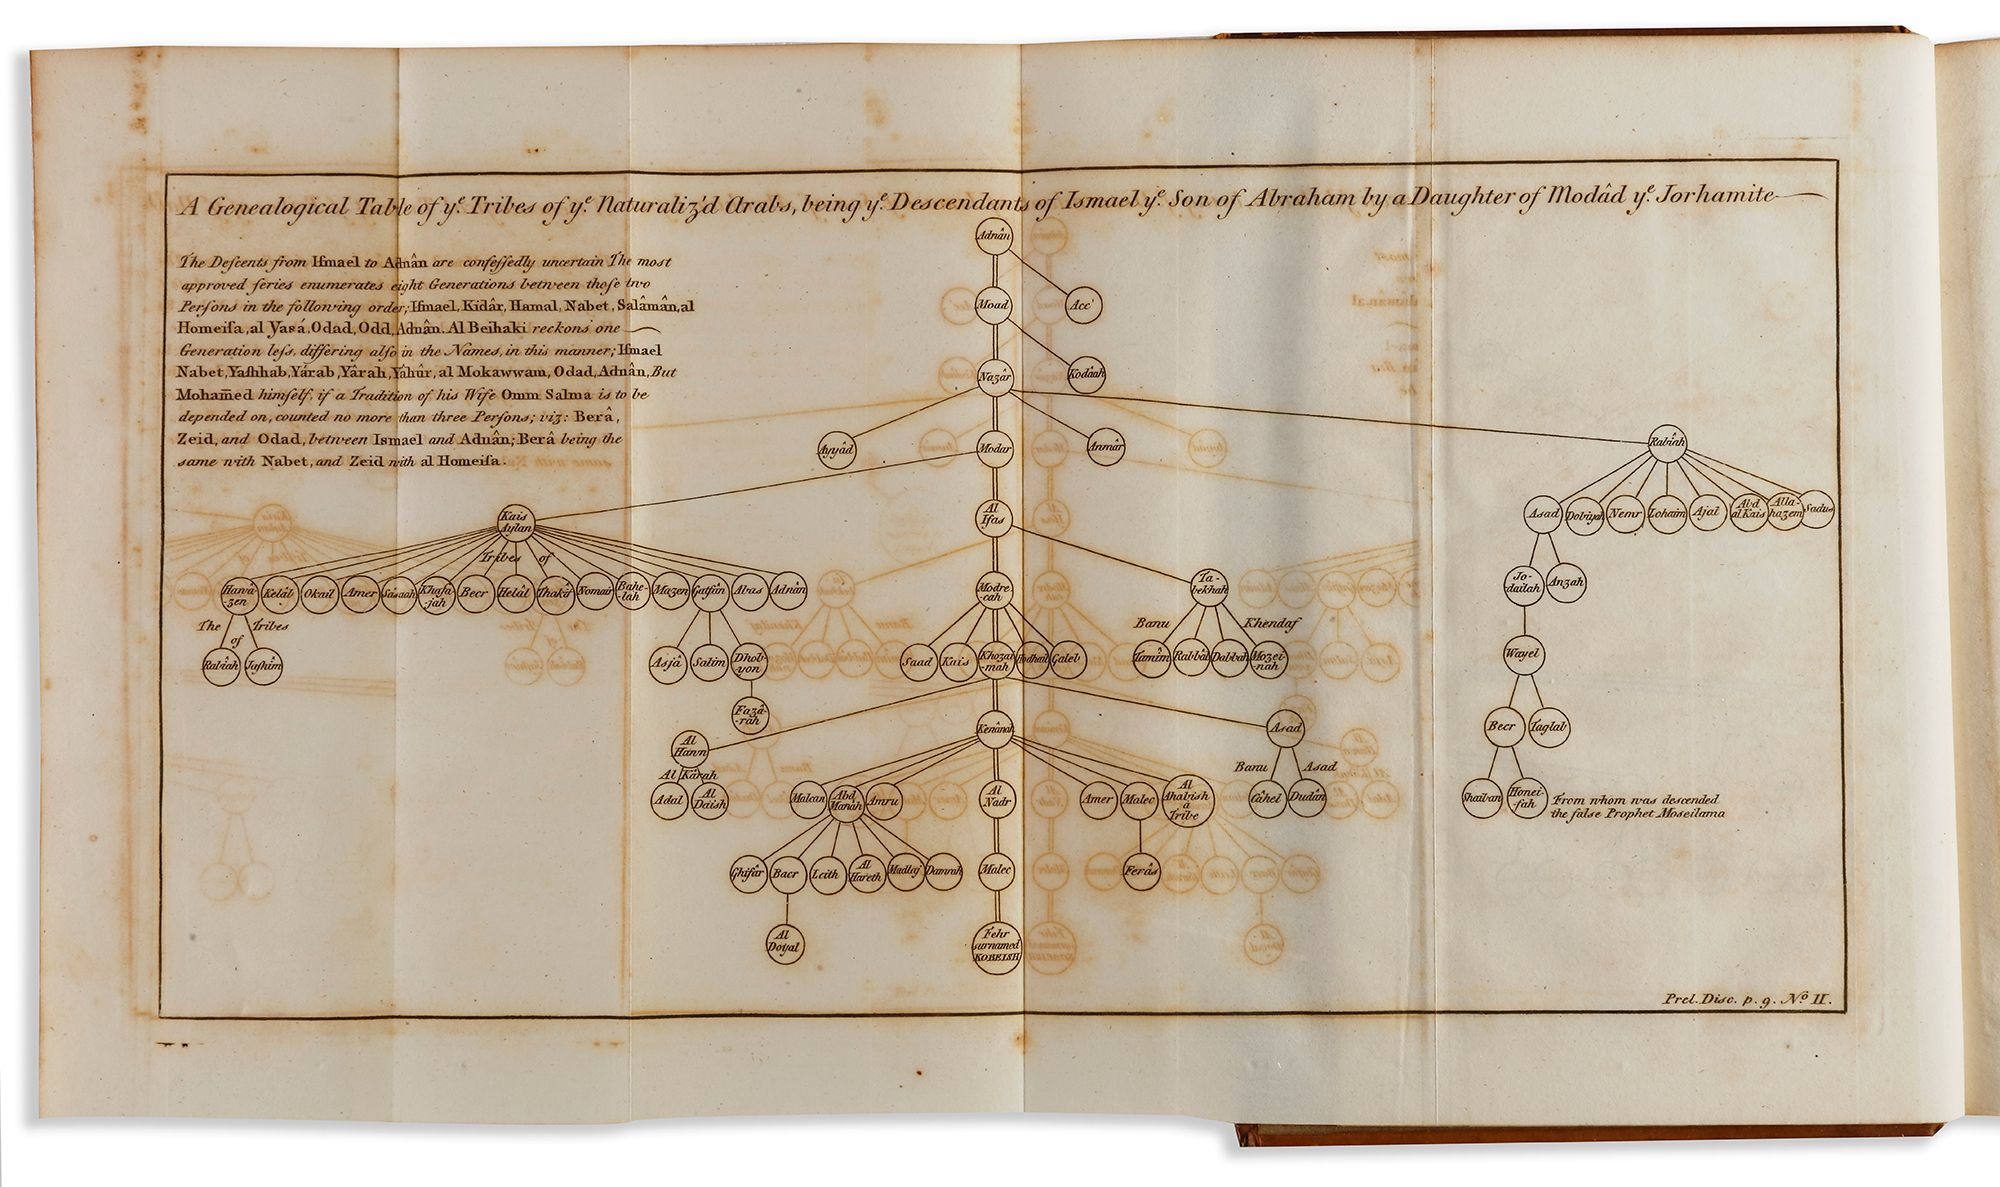 A Genealogical Table of yᵉ. Tribes of yᵉ. Naturaliz'd Arabs, being yᵉ. Descendants of Ismael yᵉ. Son of Abraham by a Daughter of Modâd yᵉ. Jorhamite
The Deſcents from Iſmael to Adnân are confeſſedly uncertain The most
approved ſeries enumerates eight Generations between thoſe two
Perſons in the following order; Iſmael, Kidâr, Hamal, Nabet, Salâmân, al
Homeiſa, al Yasá, Odad, Odd, Adnân. Al Beihaki reckons one
Generation leſs, differing alſo in the Names, in this manner; Iſmael
Nabet, Yaſhhab, Yárab, Yârah, Yâhûr, al Mokawwam, Odad, Adnân, But
Mohamed himſelf, if a Tradition of his Wife Omm Salma is to be
depended on, counted no more than three Perſons; viz: Berâ,
Zeid, and Odad, between Ismael and Adnân; Berâ being the
same with Nabet, and Zeid with al Homeiſa.
Adnân
Moad
Acc'
Nazâr
Kodâah
Ayyâd
Modar
Anmâr
Rabîah
Kais
Aylan
Al
Ifas
Asad
Dobiyah
Nemr
Lohaim
Ajal
Abd
al Kais
Alla-
hazem
Sadus
Tribes of
Hawâ-
zen
Kelâl
Okail
Amer
Sásaah
Khafa-
jah
Becr
Helâl
Thakîf
Nomair
Bahe-
lah
Mazen
Gatfân
Abas
Adnân
Modre
-cah
Ta-
bekhah
Jo-
dailah
Anzah
The Tribes
of
Banu Khendaf
Rabîah
Jashim
Asjâ
Salim
Dhob-
yon
Saad
Kais
Khozai
-mah
Hodhail
Galeb
Tamîm
Rabbâb
Dabbah
Mozei-
nah
Wayel
Fazâ-
-rah
Al
Hawn
Kenânah
Asad
Becr
Taglab
Al Kârah
Banu Asad
Adal
Al
Daish
Malcan
Abd
Manâh
Amru
Al
Nadr
Amer
Malec
Al
Ahabish
a
Tribe
Câhel
Dudân
Shaiban
Honei-
-fah
From whom was descended
the false Prophet Moseilama
Ghifâr
Bacr
Leith
Al
Hareth
Madlej
Damrah
Malec
Ferâs
Al
Doyal
Fehr
surnamed
KOREISH
Prel. Disc. p. 9. Nº II.